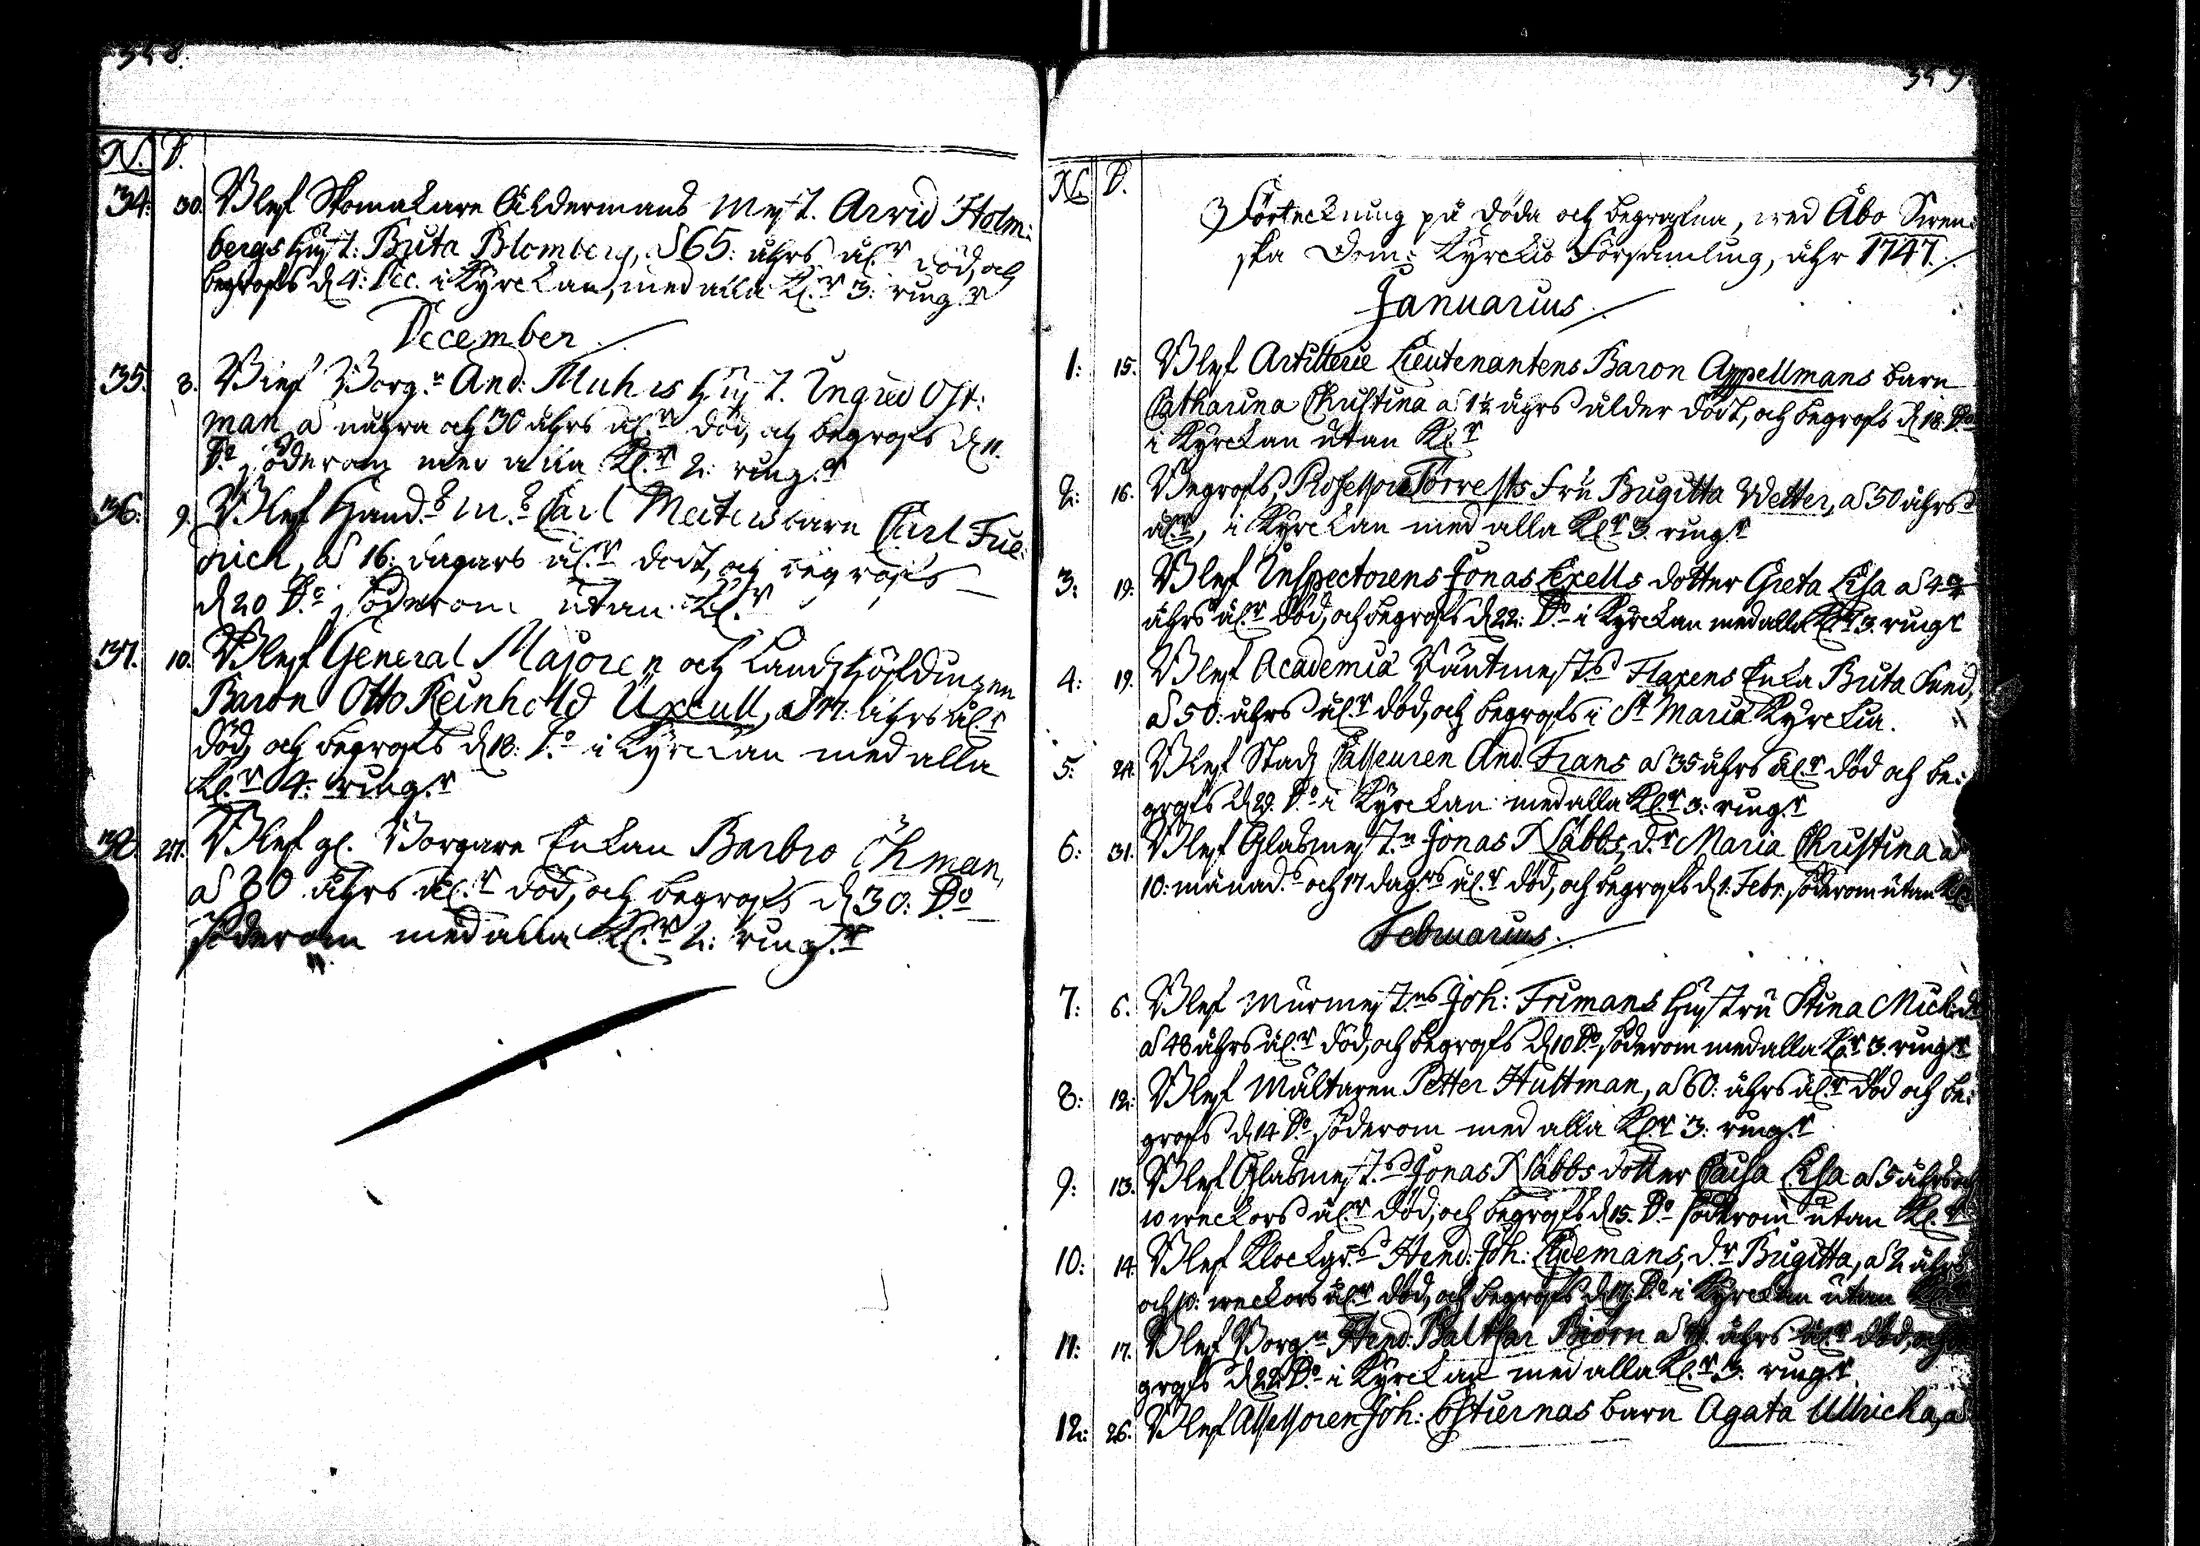 358.
N. D.
34. 30. Blef Skomakare Åldermans Mest. Arvid Holm:
bergs Hust: Brita Blomberg, a 65: åhrs ål.r död, och
begrofs d 4: Dec. i Kyrckan, med alla Kl.r 3: ring.r
December
35. 8. Blef Borg.n And: Muhrs Hust. Ingred Öst:
man a några och 30 åhrs ål.r död, och begrofs d 11.
D.o söderom med alla Kl.r 2: ring.r
36. 9. Blef Hand.s m.s Carl Meriters barn Carl Frie:
drich, a 16: dagars ål.r dödt, och begrofs
d 20 D.o söderom utan Kl.r
37. 10. Blef General Majoren och Landshöfdingen
Baron Otto Reinhold Üxcull, a åhrs ål.r
död, och begrofs d 18: D.o i Kyrckan med alla
Kl.r 4: ring.r
38. 27. Blef gl. Borgare Enkan Barbro Öhman,
a 80 åhrs ål.r död, och begrofs d 30: D.o
söderom med alla Kl.r 2: ring.r
359.
N. D.
Förteckning på döda och begrafna, wed Åbo Swen:
ska Dom: Kyrckio Församling, åhr 1747.
Januarius
1: 15. Blef Artillerie Lieutenantens Baron Appellmans barn
Catharina Christina a 1½ åhrs ålder dödt, och begrofs d 18. D.o
i Kyrckan utan Kl.r
2: 16. Begrofs, Professor Torrests Fru Brigitta Wetter, a 50 åhrs
ål.r, i Kyrckan med alla Kl.r 3. ring.r
3: 19. Blef Inspectorens Jonas Lexells dotter Greta Lisa a 4
åhrs ål.r död, och begrofs d 22: D.o i Kyrckan med alla Kl.r 3. ring.r
4: 19. Blef Academiæ Wäntmest.s Flaxens Enka Brita
a 50: åhrs ål.r död, och begrofs i St Mariæ Kyrckia.
5: 24. Blef Stads Casseuren And. Frans a 35 åhrs ål.r död och be:
grofs d 29. D.o i Kyrckan med alla Kl.r 3: ring.r
6: 31. Blef Glasmest.n Jonas Nabbs, d.r Maria Christina a
10: månad.s och 17 dag.rs ål.r död, och begrofs d 1: Febr. söderom utan Kl.r
Februarius.
7: 6. Blef Murmest.ns Joh: Frimans Hustru Stina Mickd.r
a 48 åhrs ål.r död, och begrofs d 10 D.o, söderom med alla Kl.r 3. ring.r
8: 12: Blef Mältaren Petter Hultman, a 60: åhrs ål.r död och be:
grofs d 14 D.o söderom med alla Kl.r 3: ring.r
9: 13. Blef Glasmest.s Jonas Nabbs dotter Caisa Lisa a 5 åhrs och
10 weckors ål.r död, och begrofs d 15. D.o söderom utan Kl.r
10: 14. Blef Klockar.s Hend: Joh: Lydemans, d.r Brigitta, a 2 åhrs
och 10: weckors ål.r död, och begrofs d 17. D.o i Kyrckan utan
11: 17. Blef Borg.n Hend: Balthar Biörn a åhrs ål.r död, och be
grofs d 22. D.o i Kyrckan med alla Kl.r 3. ring.r
12: 26. Blef Assessoren Joh: Costiernas barn Agata Ullricha, a